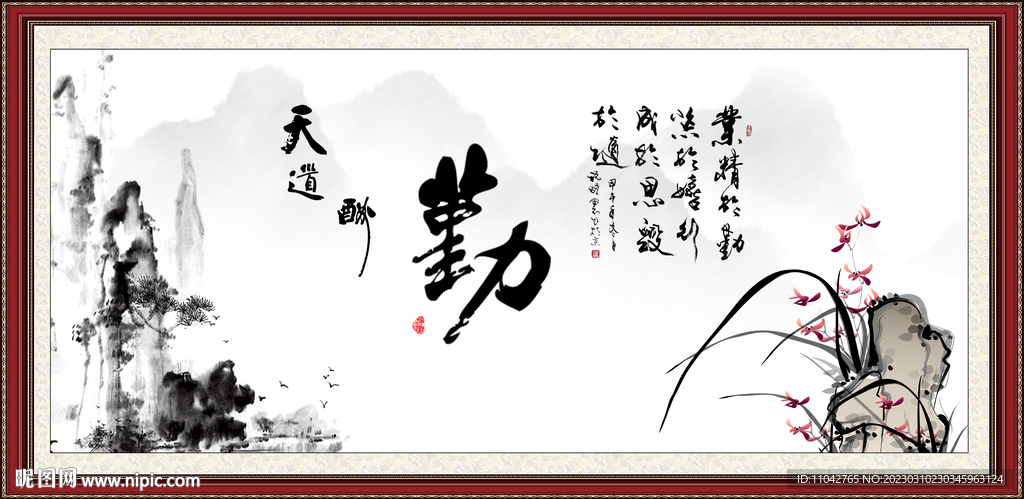 天道
酬
勤
業精於勤
荒於嬉行
成於思毀
於隨
昵图网 www.nipic.com
ID:11042765 NO:20230310230345963124